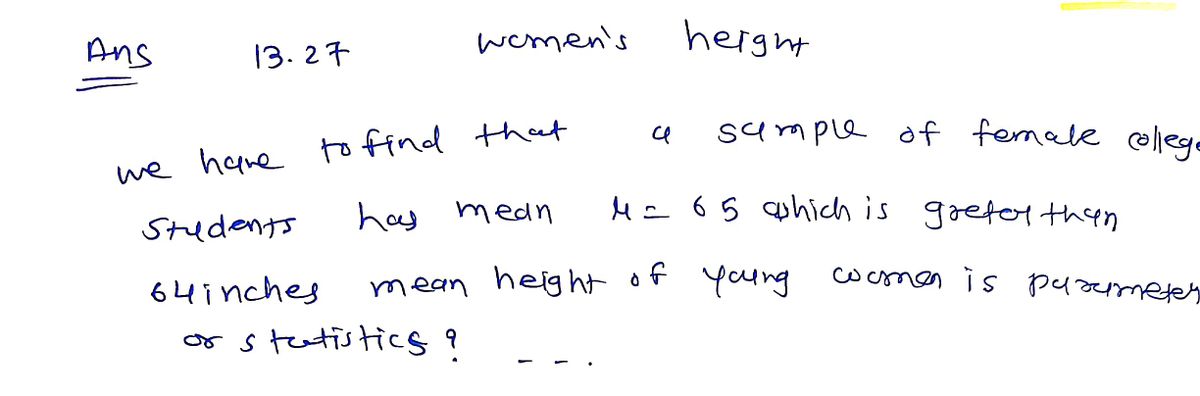 Ans 13.27 women's height
we have to find that a sample of female college
Students has mean μ = 65 which is greter than
64inches mean height of young women is parameter
or statistics? --.